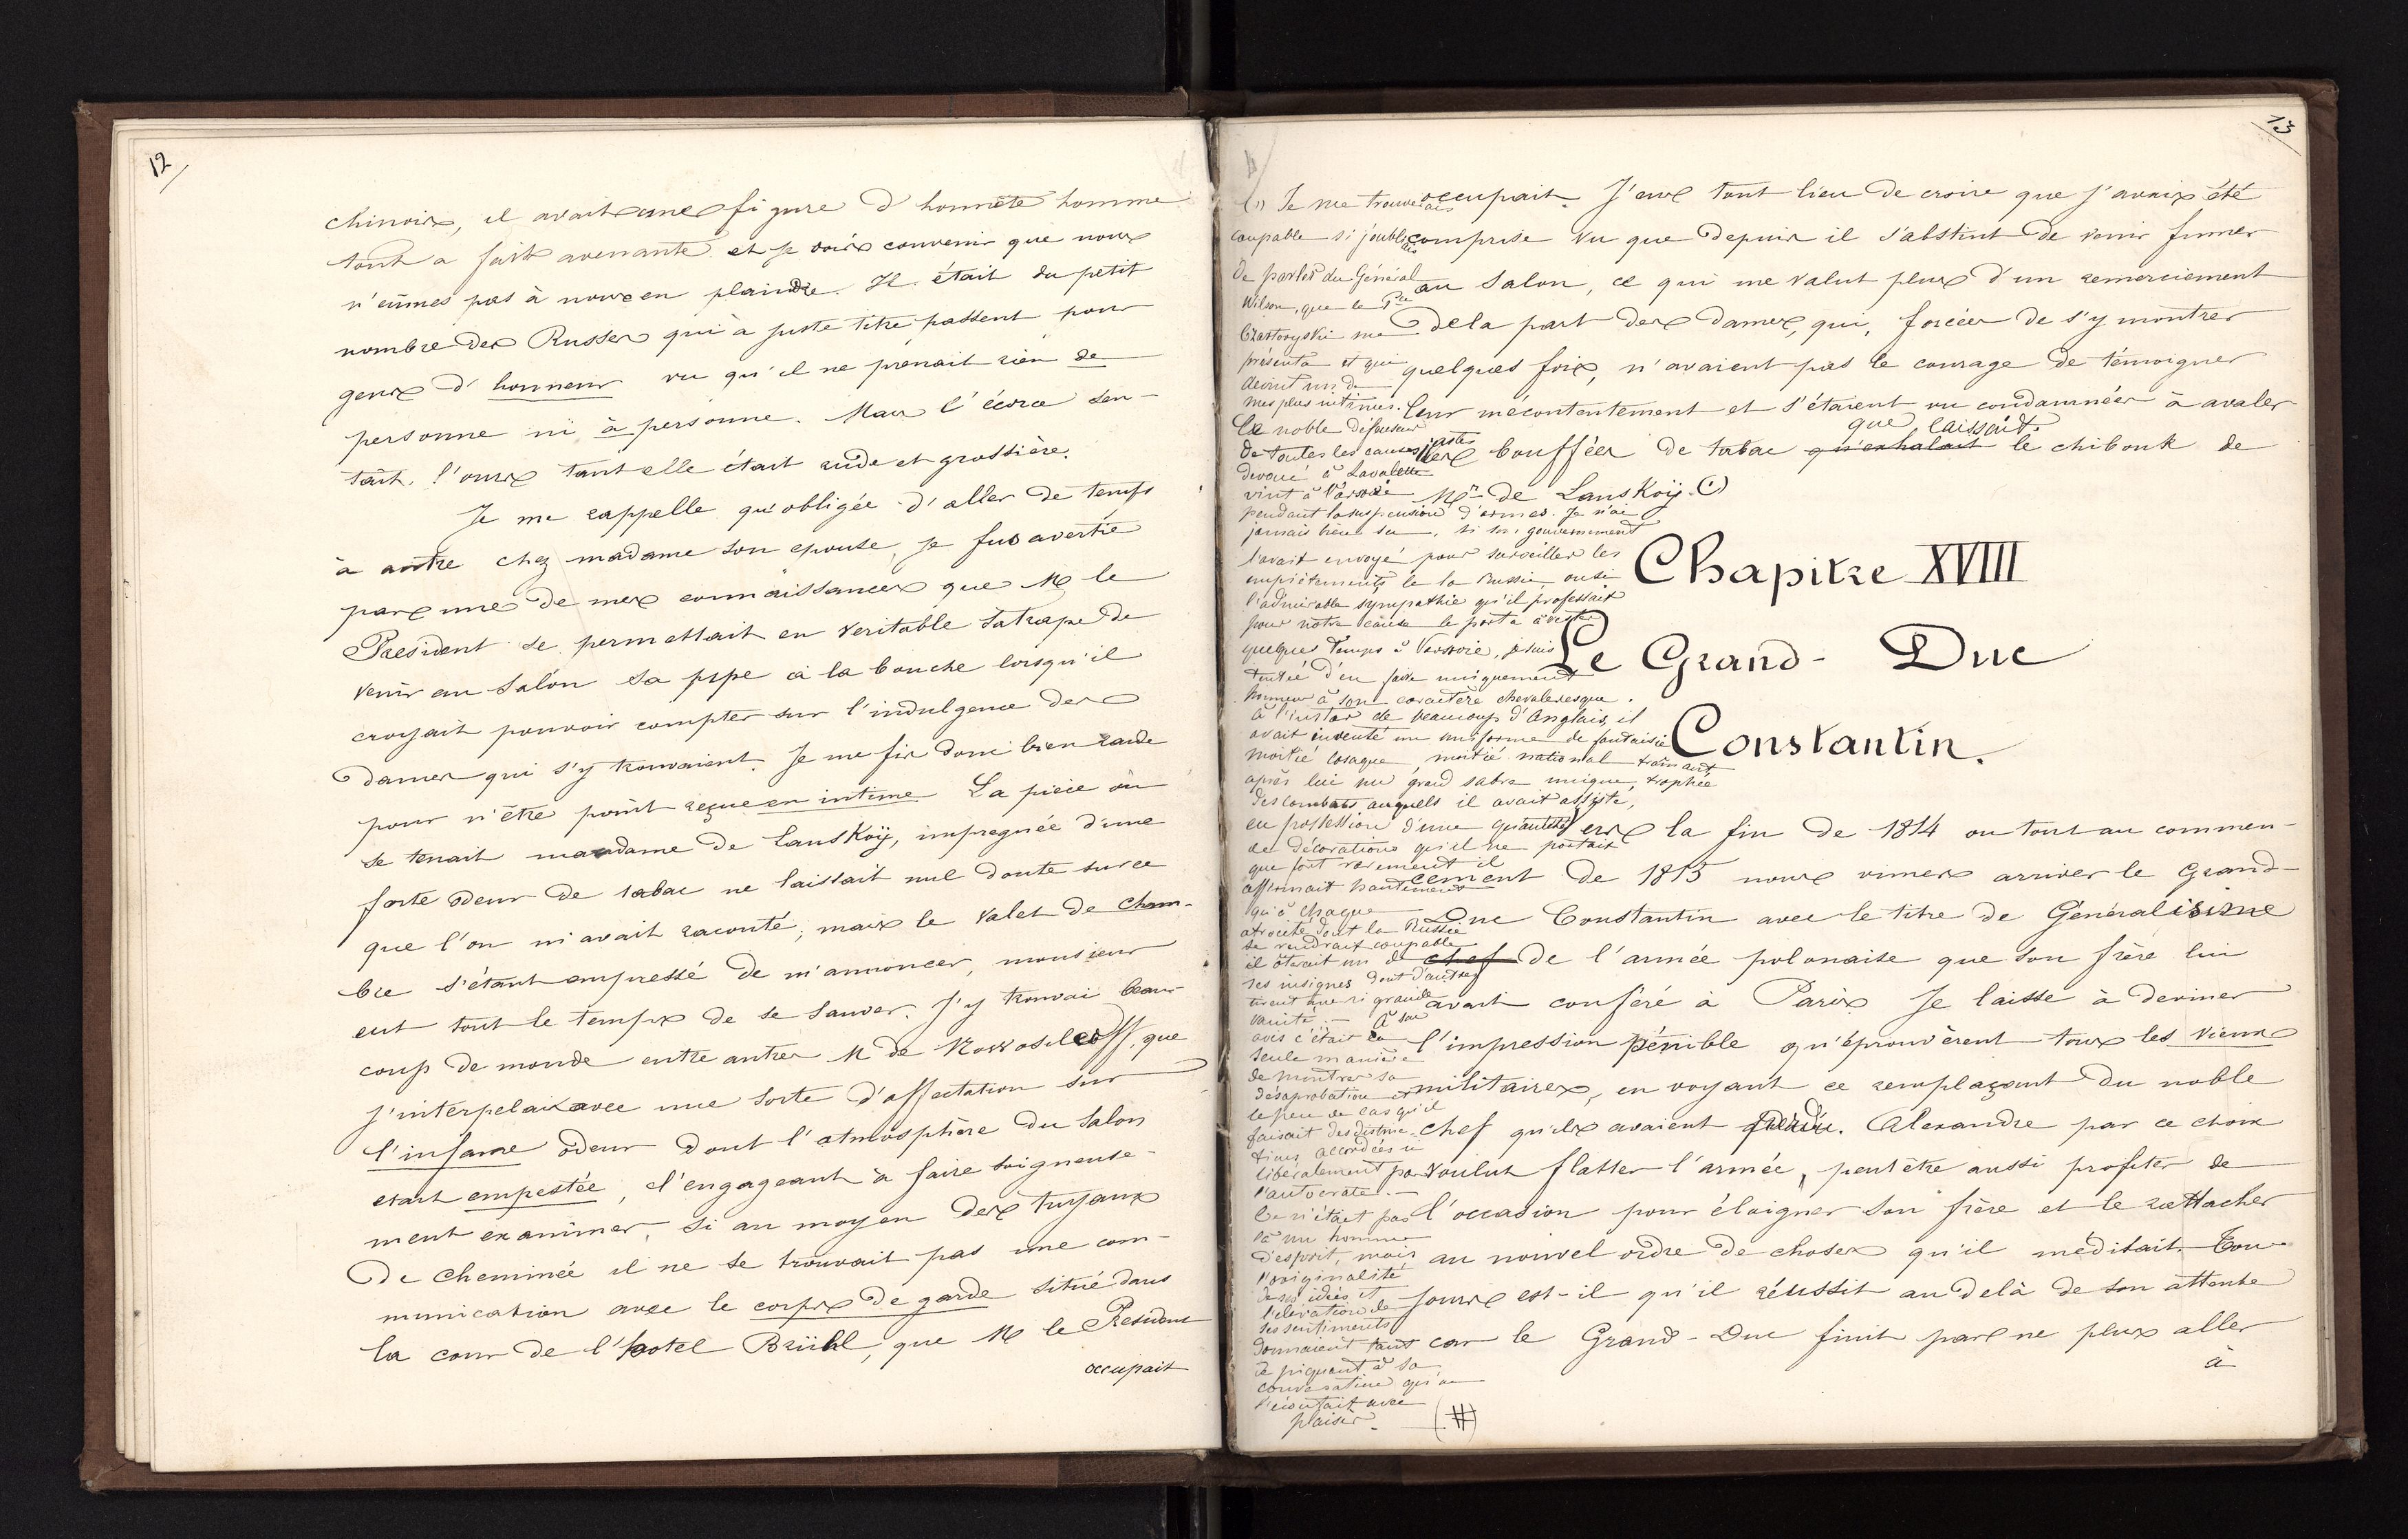 12
chinois, il avait une figure d'honnête homme
tout a fait avenante et je dois convenir que nous
n'eûmes pas à nous en plaindre. Il était du petit
nombre des Russes qui à juste titre passent pour
gens d'honneur vu qu'il ne prenait rien de
personne ni à personne. Mais l'écorce sen-
tait l'ours tant elle était rude et grossière.
Je me rappelle qu'obligée d'aller de temps
à autre chez madame son epouse, je fus avertie
par une de mes connaissances que M le
President se permettait en veritable satrape de
venir au salon sa pipe à la bouche lorsqu'il
croyait pouvoir compter sur l'indulgence des
dames qui s'y trouvaient. Je me fis donc bien raide
pour n'être point reçue en intime La pièce où
se tenait madame de Lanskoÿ, impregnée d'une
forte odeur de tabac ne laissait nul doute sur ce
que l'on m'avait raconté; mais le valet de cham-
bre s'étant empressé de m'annoncer, monsieur
eut tout le temps de se sauver. J'y trouvai beau-
coup de monde entre autres M de Novosiltzoff, que
j'interpelai avec une sorte d'affectation sur
l'infame odeur dont l'atmosphère du salon
etait empestée, l'engageant à faire soigneuse-
ment examiner, si au moyen des tuyaux
de cheminée il ne se trouvait pas une com-
munication avec le corps de garde situé dans
la cour de l'hotel Brühl, que M le President
occupait
13
occupait. J'eus tout lieu de croire que j'avais été
comprise vu que depuis il s'abstint de venir fumer
au salon, ce qui me valut plus d'un remerciement
de la part des dames, qui, forcées de s'y montrer
quelques fois, n'avaient pas le courage de témoigner
leur mécontentement et s'étaient vu condamnées à avaler
que laissait
les bouffées de tabac qu'exhalait le chibouk de
Mr de Lanskoÿ. (1)
Chapitre XVIII
Le Grand-Duc
Constantin.
Vers la fin de 1814 ou tout au commen-
cement de 1815 nous vimes arriver le Grand-
Duc Constantin avec le titre de Généralissime
chef de l'armée polonaise que son frère lui
avait conféré à Paris Je laisse à deviner
l'impression pénible qu'éprouvèrent tous les vieux
militaires, en voyant ce remplaçant du noble
chef qu'ils avaient perdu. Alexandre par ce choix
voulut flatter l'armée, peut être aussi profiter de
l'occasion pour éloigner son frère et le rattacher
au nouvel ordre de choses qu'il méditait. Tou-
jours est-il qu'il réussit au delà de son attente
car le Grand-Duc finit par ne plus aller
à
(1) Je me trouverais
coupable si j'oubliais
de parler du Général
Wilson, que le Pce
Czartoryski me
présenta et qui
devint un de
mes plus intimes.
Ce noble défenseur
de toutes les causes justes
devoué à Lavalette
vint à Varsovie
pendant la suspension d'armes. Je n'ai
jamais bien su, si son gouvernement
l'avait envoyé pour surveiller les
empiètements de la Russie ou si
l'admirable sympathie qu'il professait
pour notre cause le porta à rester
quelque temps à Varsovie, je suis
tentée d'en faire uniquement
honneur à son caractère chevaleresque.
à l'instar de beaucoup d'Anglais, il
avait inventé un uniforme de fantaisie
moitié cosaque, moitié national trainant
après lui un grand sabre unique, trophée
des combats auquels il avait assisté,
en possession d'une quantité
de décorations qu'il ne portait
que fort rarement il
affirmait hautement
qu'à chaque
atrocité dont la Russie
se rendrait coupable
il ôterait un de
ses insignes dont d'autres
tirent une si grande
vanité. — à son
avis c'était la
seule manière
de montrer sa
desaprobation et
le peu de cas qu'il
faisait des distinc-
tions accordées si
libéralement par
l'autocrate. —
Ce n'était pas
là un homme
d'esprit, mais
l'originalité
de ses idées et
l'élévation de
ses sentiments
donnaient tant
de piquant à sa
conversation qu'on
l'écoutait avec
plaisir. — (#)